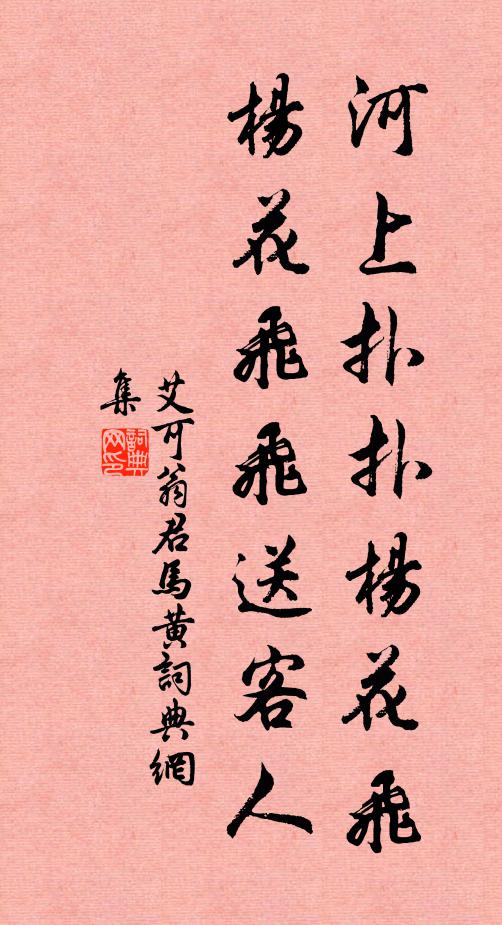 河上扑扑楊花飛
楊花飛飛送客人
艾可翁君馬黄詞典網
集
詞典網印